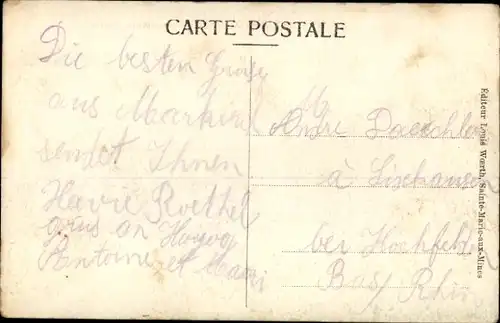 CARTE POSTALE
Die besten Grüße
aus Markirch
sendet Ihnen
Roethel
grüs an
Antoine et
Mr
André Daeschler
à
bei Hochfelden
Bas Rhin
Éditeur Louis Wœrth, Sainte-Marie-aux-Mines